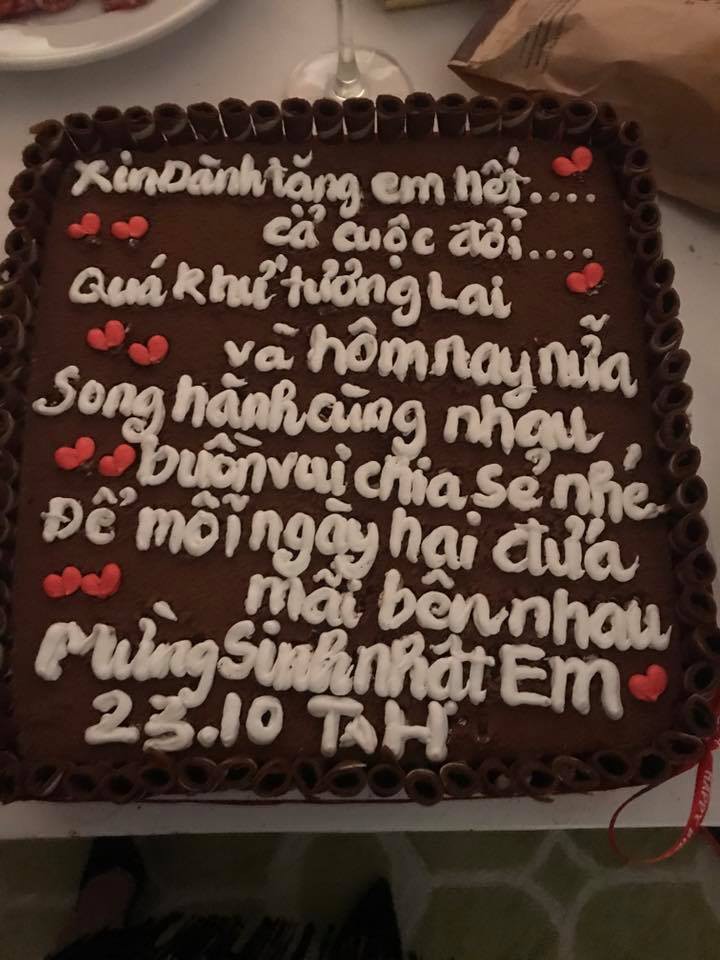 Xin Dành tặng em hết....
cả cuộc đời....
Quá khứ tương Lai
và hôm nay nữa
Song hành cùng nhau
buồn vui chia sẻ nhé
Để mỗi ngày hai đứa
mãi bên nhau
Mừng Sinh nhật Em
23.10 T&H
HAPPY